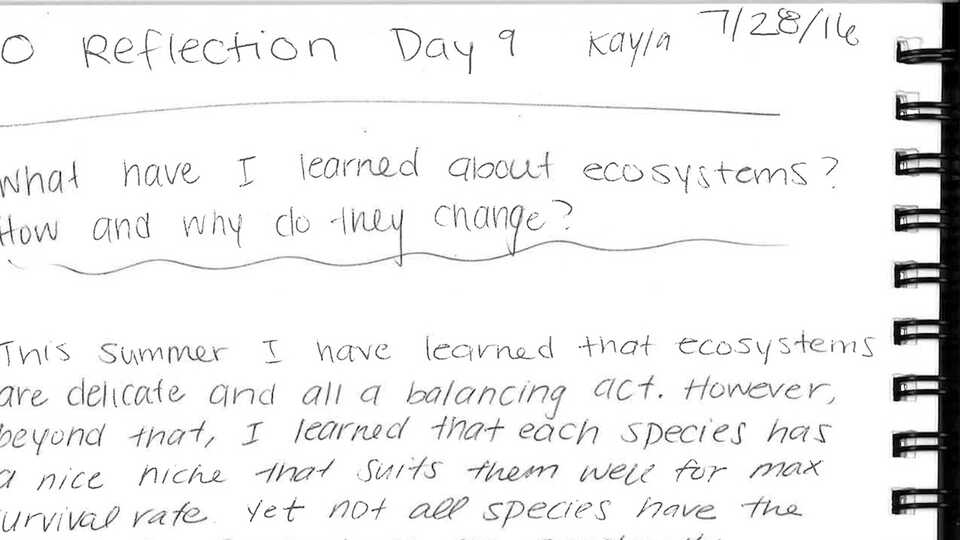 O Reflection Day 9 Kayla 7/28/16
What have I learned about ecosystems?
How and why do they change?
This summer I have learned that ecosystems
are delicate and all a balancing act. However,
beyond that, I learned that each species has
a nice niche that suits them well for max
survival rate. Yet not all species have the